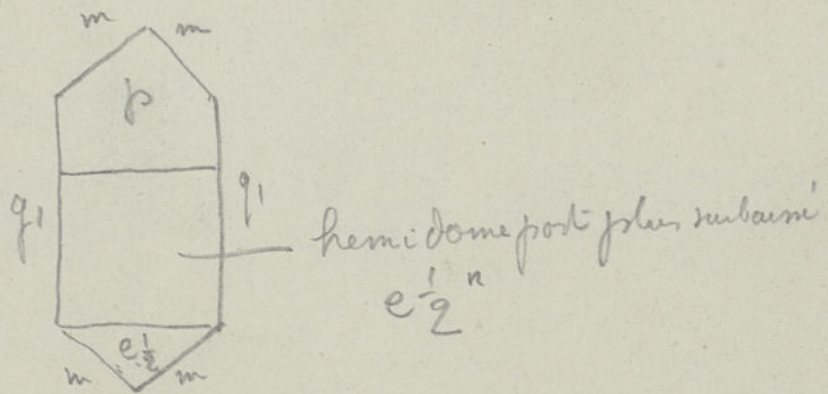 m m
p
g1 g1
hemidome post plus surbaissé
e 1/2 n
e 1/2
m m